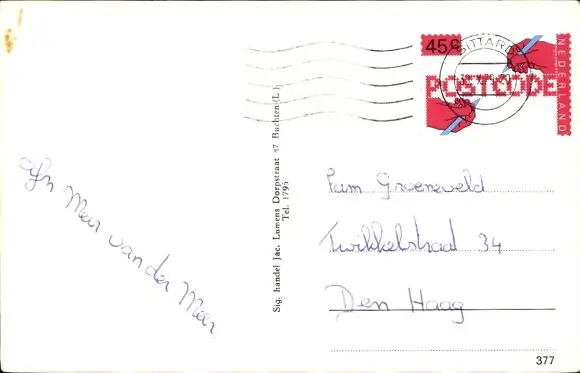 45c
NEDERLAND
SITTARD
POSTCODE
Sig. handel Jac. Lumens Dorpstraat 47 Buchten (L.)
Tel. 1795
Fam Groeneveld
Twikkelstraat 34
Den Haag
Meir van der Meer
377